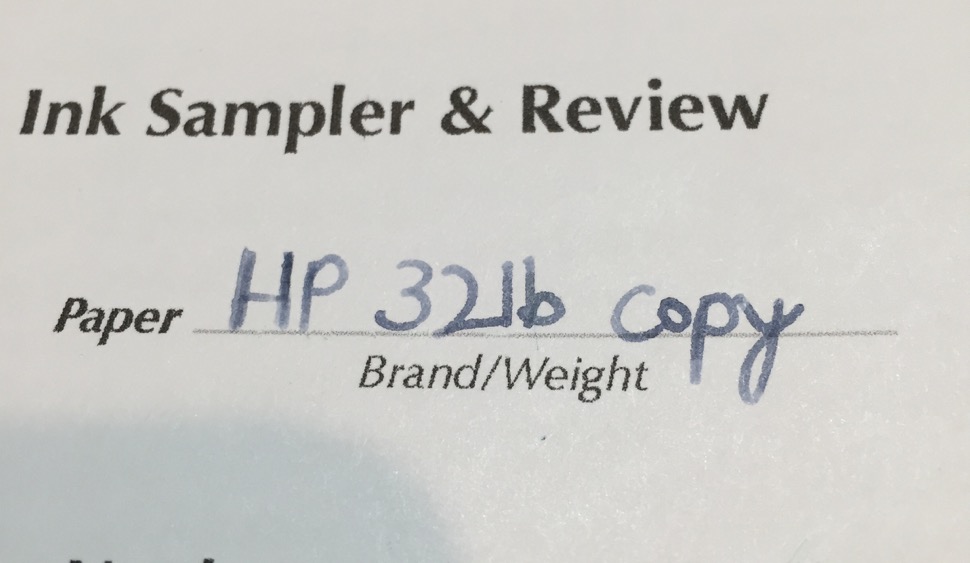 Ink Sampler & Review
Paper HP 32lb copy
Brand/Weight